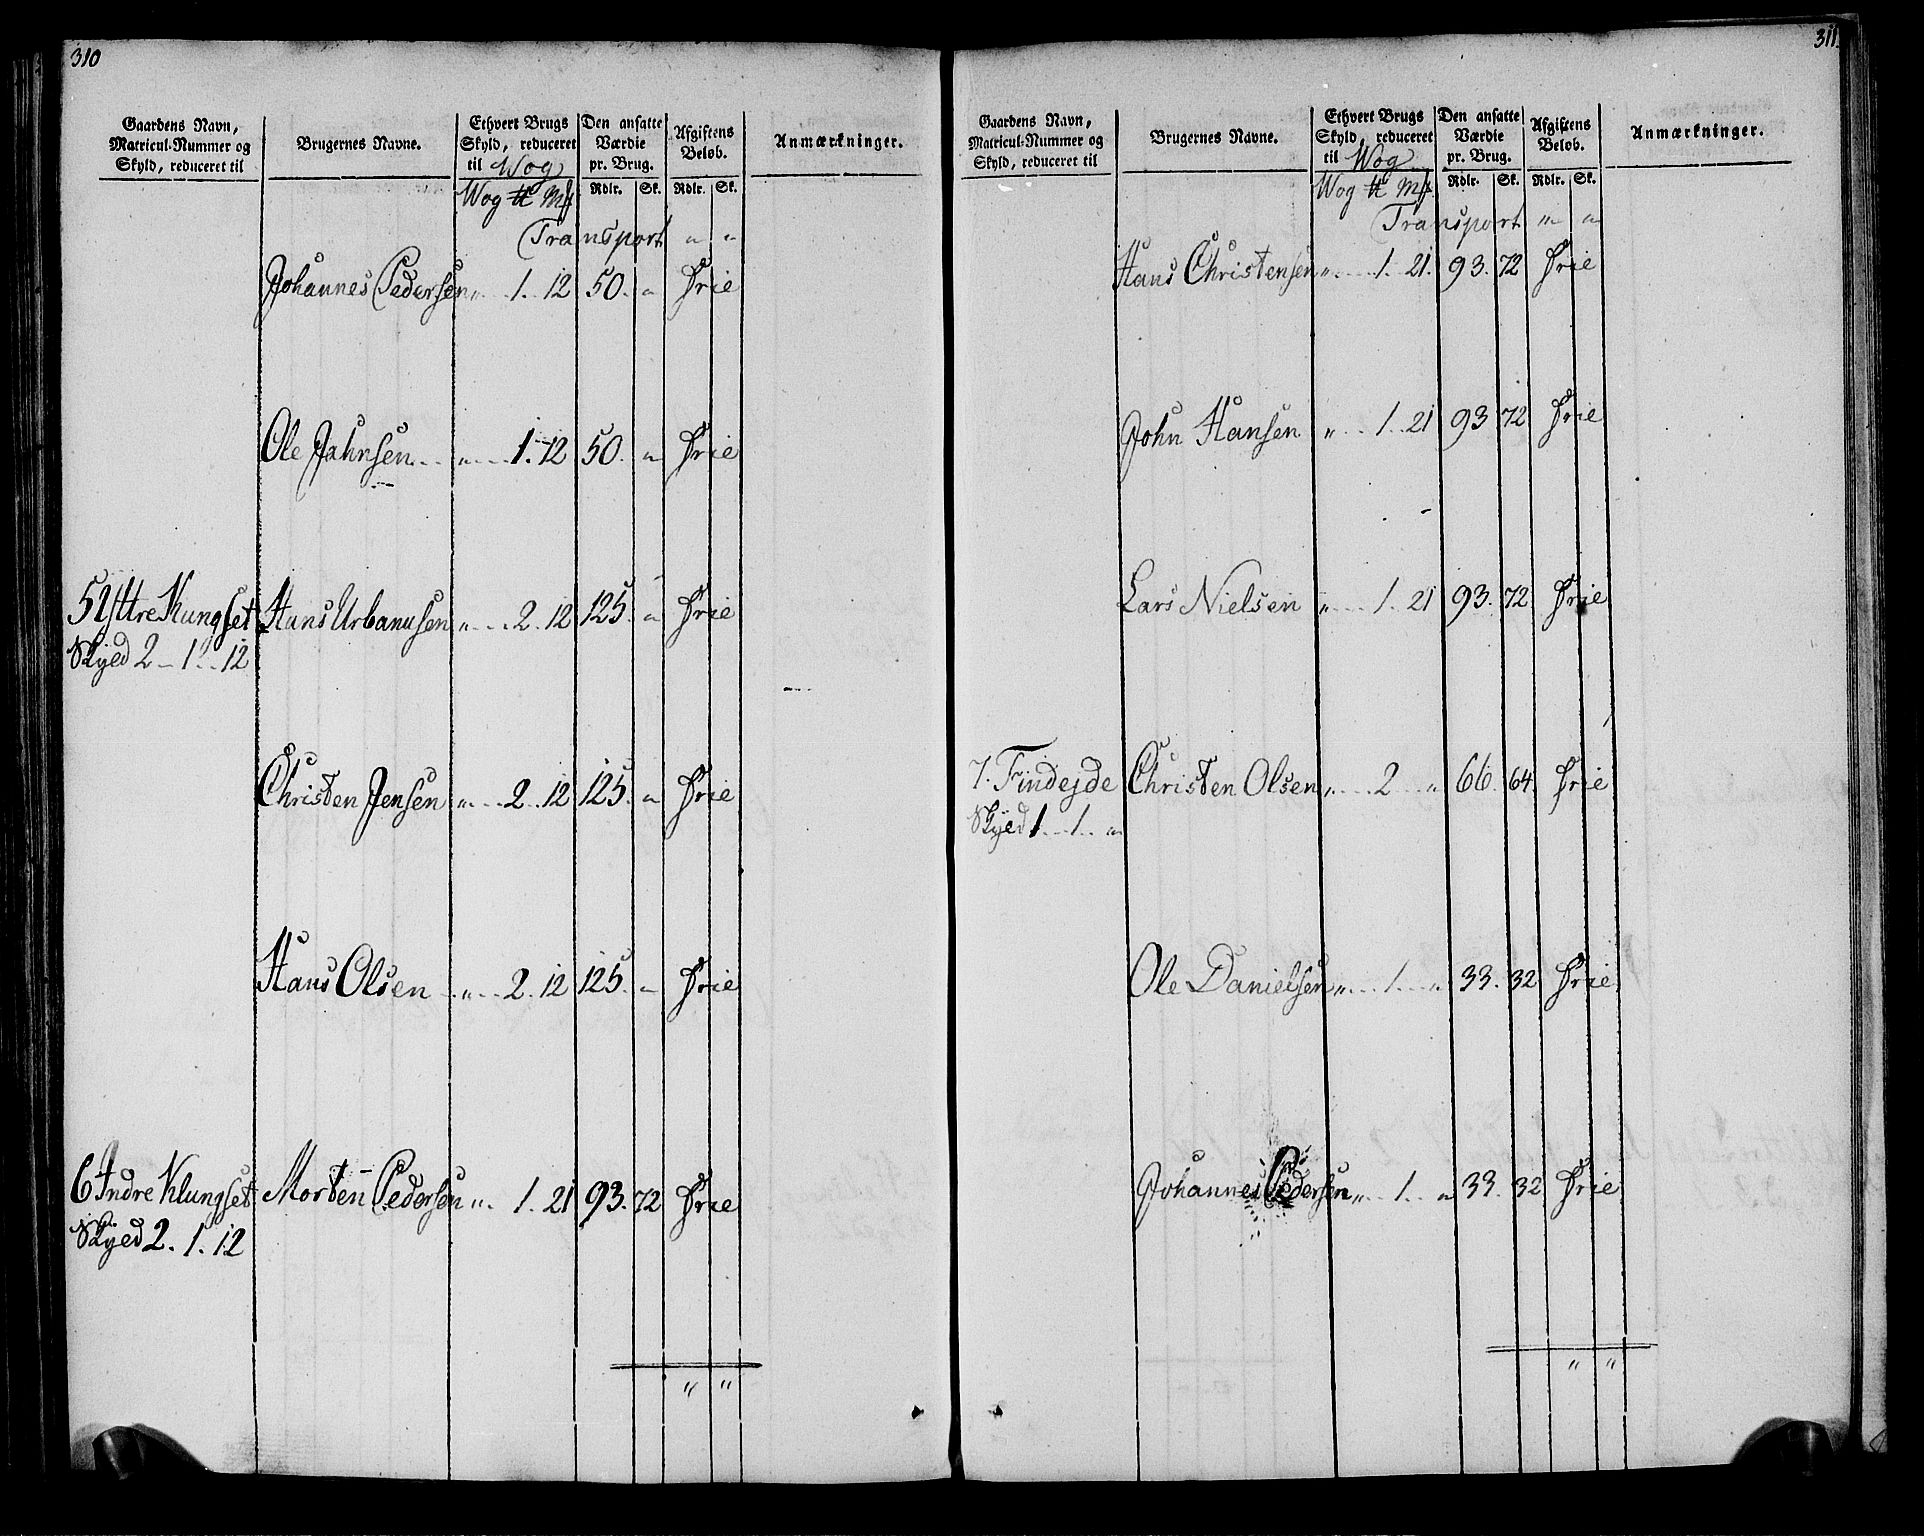 310
Gaardens Navn, Matricul-Nummer og Skyld, reduceret til
Brugernes Navne.
Ethvert Brugs Skyld, reduceret til Wog
Den ansatte Værdie pr. Brug.
Afgiftens Beløb.
Anmærkninger.
Wog ℔ Mk Rdlr. Sk. Rdlr. Sk.
Transport " "
Johannes Pedersen " 1. 12 50. " Frie
Ole Jahnsen " 1. 12 50. " Frie
5 Yttre Klungset Hans Urbanusen " 2. 12 125. " Frie
Skyld 2 - 1 - 12
Christen Jensen " 2. 12 125. " Frie
Hans Olsen " 2. 12 125. " Frie
6 Indre Klungset Morten Pedersen " 1. 21 93. 72 Frie
Skyld 2. 1. 12
" "
311.
Gaardens Navn, Matricul-Nummer og Skyld, reduceret til
Brugernes Navne.
Ethvert Brugs Skyld, reduceret til Wog
Den ansatte Værdie pr. Brug.
Afgiftens Beløb.
Anmærkninger.
Wog ℔ Mk Rdlr. Sk. Rdlr. Sk.
Transport " "
Hans Christensen " 1. 21. 93. 72 Frie
John Hansen " 1. 21 93 72 Frie
Lars Nielsen " 1. 21 93. 72 Frie
7. Findejde Christen Olsen " 2 " 66. 64 Frie
Skyld 1. 1. "
Ole Danielsen " 1. " 33. 32 Frie
Johannes Pedersen " 1. " 33. 32 Frie
" "